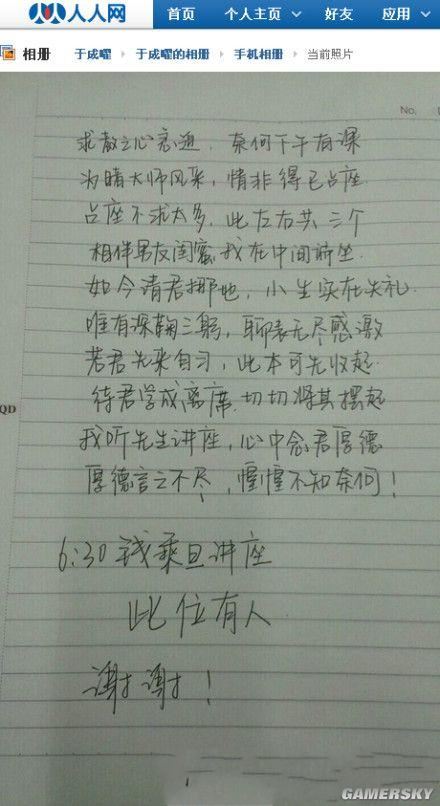 人人网
首页 个人主页 好友 应用
相册 于成曜 > 于成曜的相册 > 手机相册 > 当前照片
No.
求教之心甚迫，奈何下午有课
为睹大师风采，情非得已占座
占座不求太多，此左右共三个
相伴男友闺蜜，我在中间前坐
如今请君挪地，小生实在失礼
唯有深鞠三躬，聊表无尽感激
若君先来自习，此本可先收起
待君学成离席，切切将其摆起
我听先生讲座，心中念君厚德
厚德言之不尽，惺惺不知奈何！
QD
6:30 钱乘旦讲座
此位有人
谢谢！
GAMERSKY